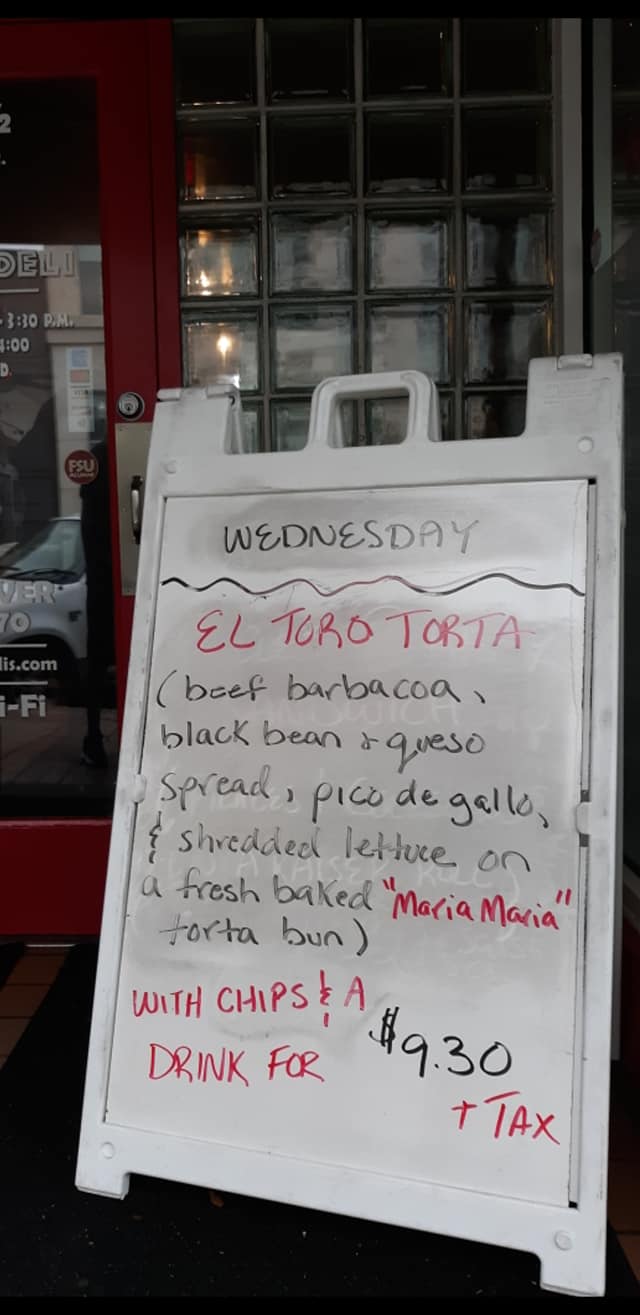 2
DELI
- 3:30 P.M.
4:00
D.
VISA
FSU
VER
70
lis.com
i-Fi
WEDNESDAY
EL TORO TORTA
(beef barbacoa,
black bean & queso
spread, pico de gallo,
& shredded lettuce on
a fresh baked "Maria Maria"
torta bun)
WITH CHIPS & A
DRINK FOR $9.30
+ TAX